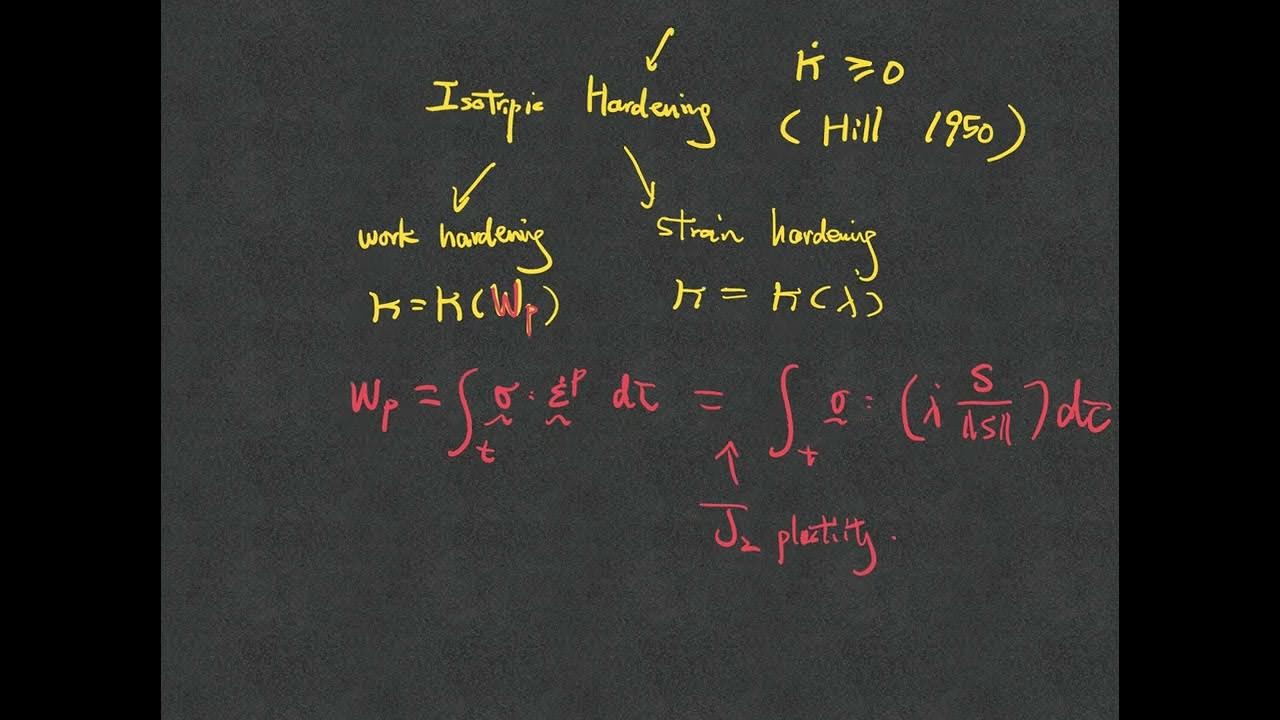 Isotripic Hardening κ̇ ≥ 0
(Hill 1950)
work hardening strain hardening
κ = κ(Wp) κ = κ(λ)
Wp = ∫t σ : ε̇ᵖ dτ = ∫t σ : (λ̇ S/‖S‖) dτ
J₂ plastiity.